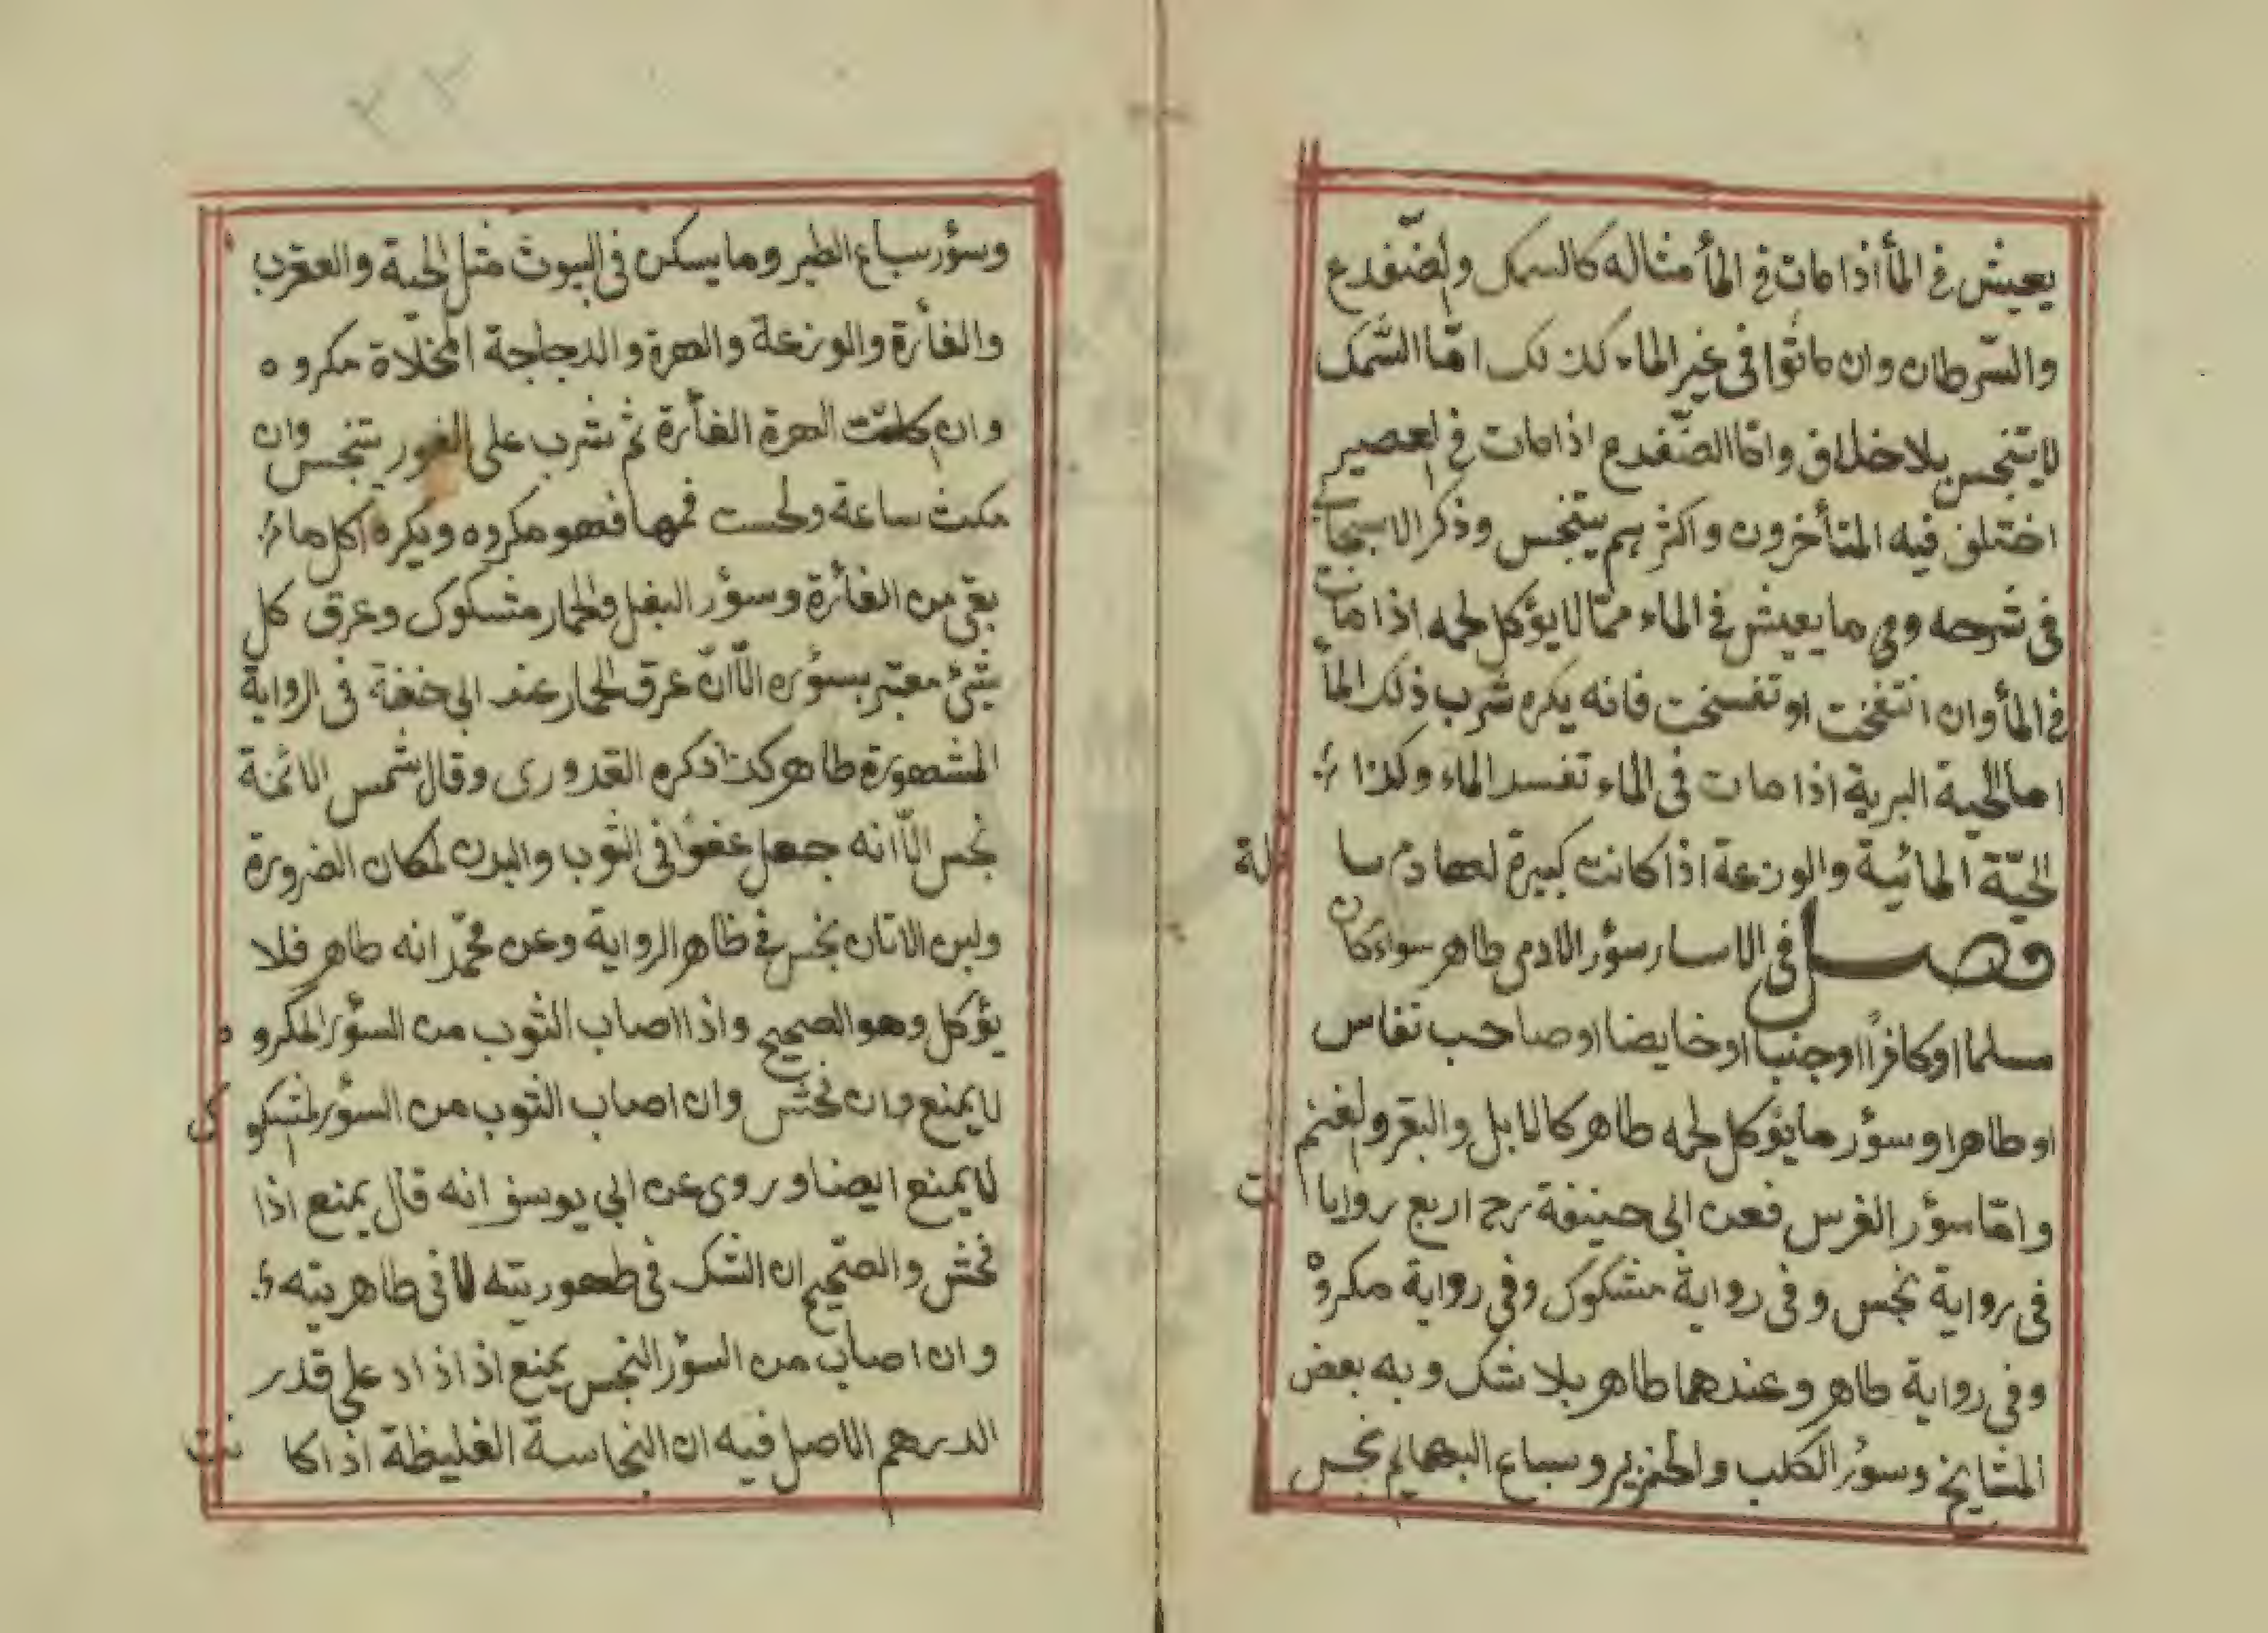 يعيش في المأ اذا مات في المأ مثاله كالسمك والضّفدع
والسّرطان وان ماتوا في غير الماء كذلك امّا السّمك
لا يتنجس بلا خلاف وامّا الضّفدع اذا مات في العصير
اختلف فيه المتأخرون واكثرهم يتنجس وذكر الاسبيجابي
في شرحه وفي ما يعيش في الماء ممّا لا يؤكل لحمه اذا مات
في المأ وان انتفخت او تفسخت فانه يكره شرب ذلك المأ
اما الحية البرية اذا مات في الماء تفسد الماء وكذا
الحيّة المائية والوزغة اذا كانت كبيرة لها دم سا ئلة
فصل في الاسار سؤر الادمي طاهر سواء كان
مسلما او كافرًا او جنبا او خايضا او صاحب نفاس
او طاهرا وسؤر ما يؤكل لحمه طاهر كالابل والبقر والغنم
وامّا سؤر الفرس فعن ابي حنيفة رح اربع روايا ات
في رواية نجس وفي رواية مشكوك وفي رواية مكروه
وفي رواية طاهر وعندهما طاهر بلا شك وبه بعض
المشايخ وسؤر الكلب والخنزير وسباع البهايم نجس
٢٢
وسؤر سباع الطير وما يسكن في البيوت مثل الحية والعقرب
والفأرة والوزغة والهرة والدجاجة المخلّاة مكروه
وان اكلت الهرة الفأرة ثم شرب على الفور يتنجس وان
مكث ساعة ولحست فمها فهو مكروه ويكره اكل ما
بقي من الفأرة وسؤر البغل والحمار مشكوك وعرق كل
شئ معتبر بسؤره الّا انّ عرق الحمار عند ابي حنفة في الرواية
المشهورة طاهر كذا ذكره القدوري وقال شمس الائمة
نجس الّا انه جعل عفوًا في الثوب والبدن لمكان الضرورة
ولبن الاتان نجس في ظاهر الرواية وعن محمّد انه طاهر فلا
يؤكل وهو الصحيح واذا اصاب الثوب من السؤر المكرو ه
لا يمنع وان فحش وان اصاب الثوب من السؤر المشكو ك
لا يمنع ايضا وروي عن ابي يوسف انه قال يمنع اذا
فحش والصّحيح ان الشك في طهوريته لا في طاهريته
وان اصاب من السؤر النجس يمنع اذا زاد علي قدر
الدرهم الاصل فيه ان النجاسة الغليظة اذا كا نت